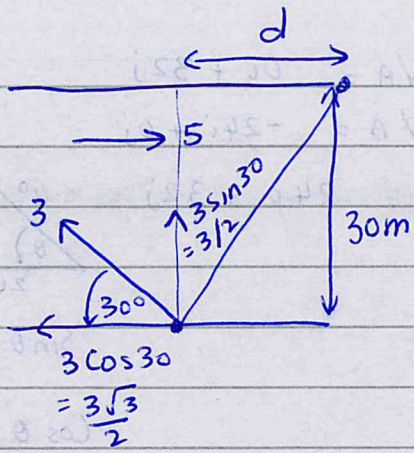 d
5
3
3sin30
= 3/2
30m
30°
3 Cos 30
= 3√3
2